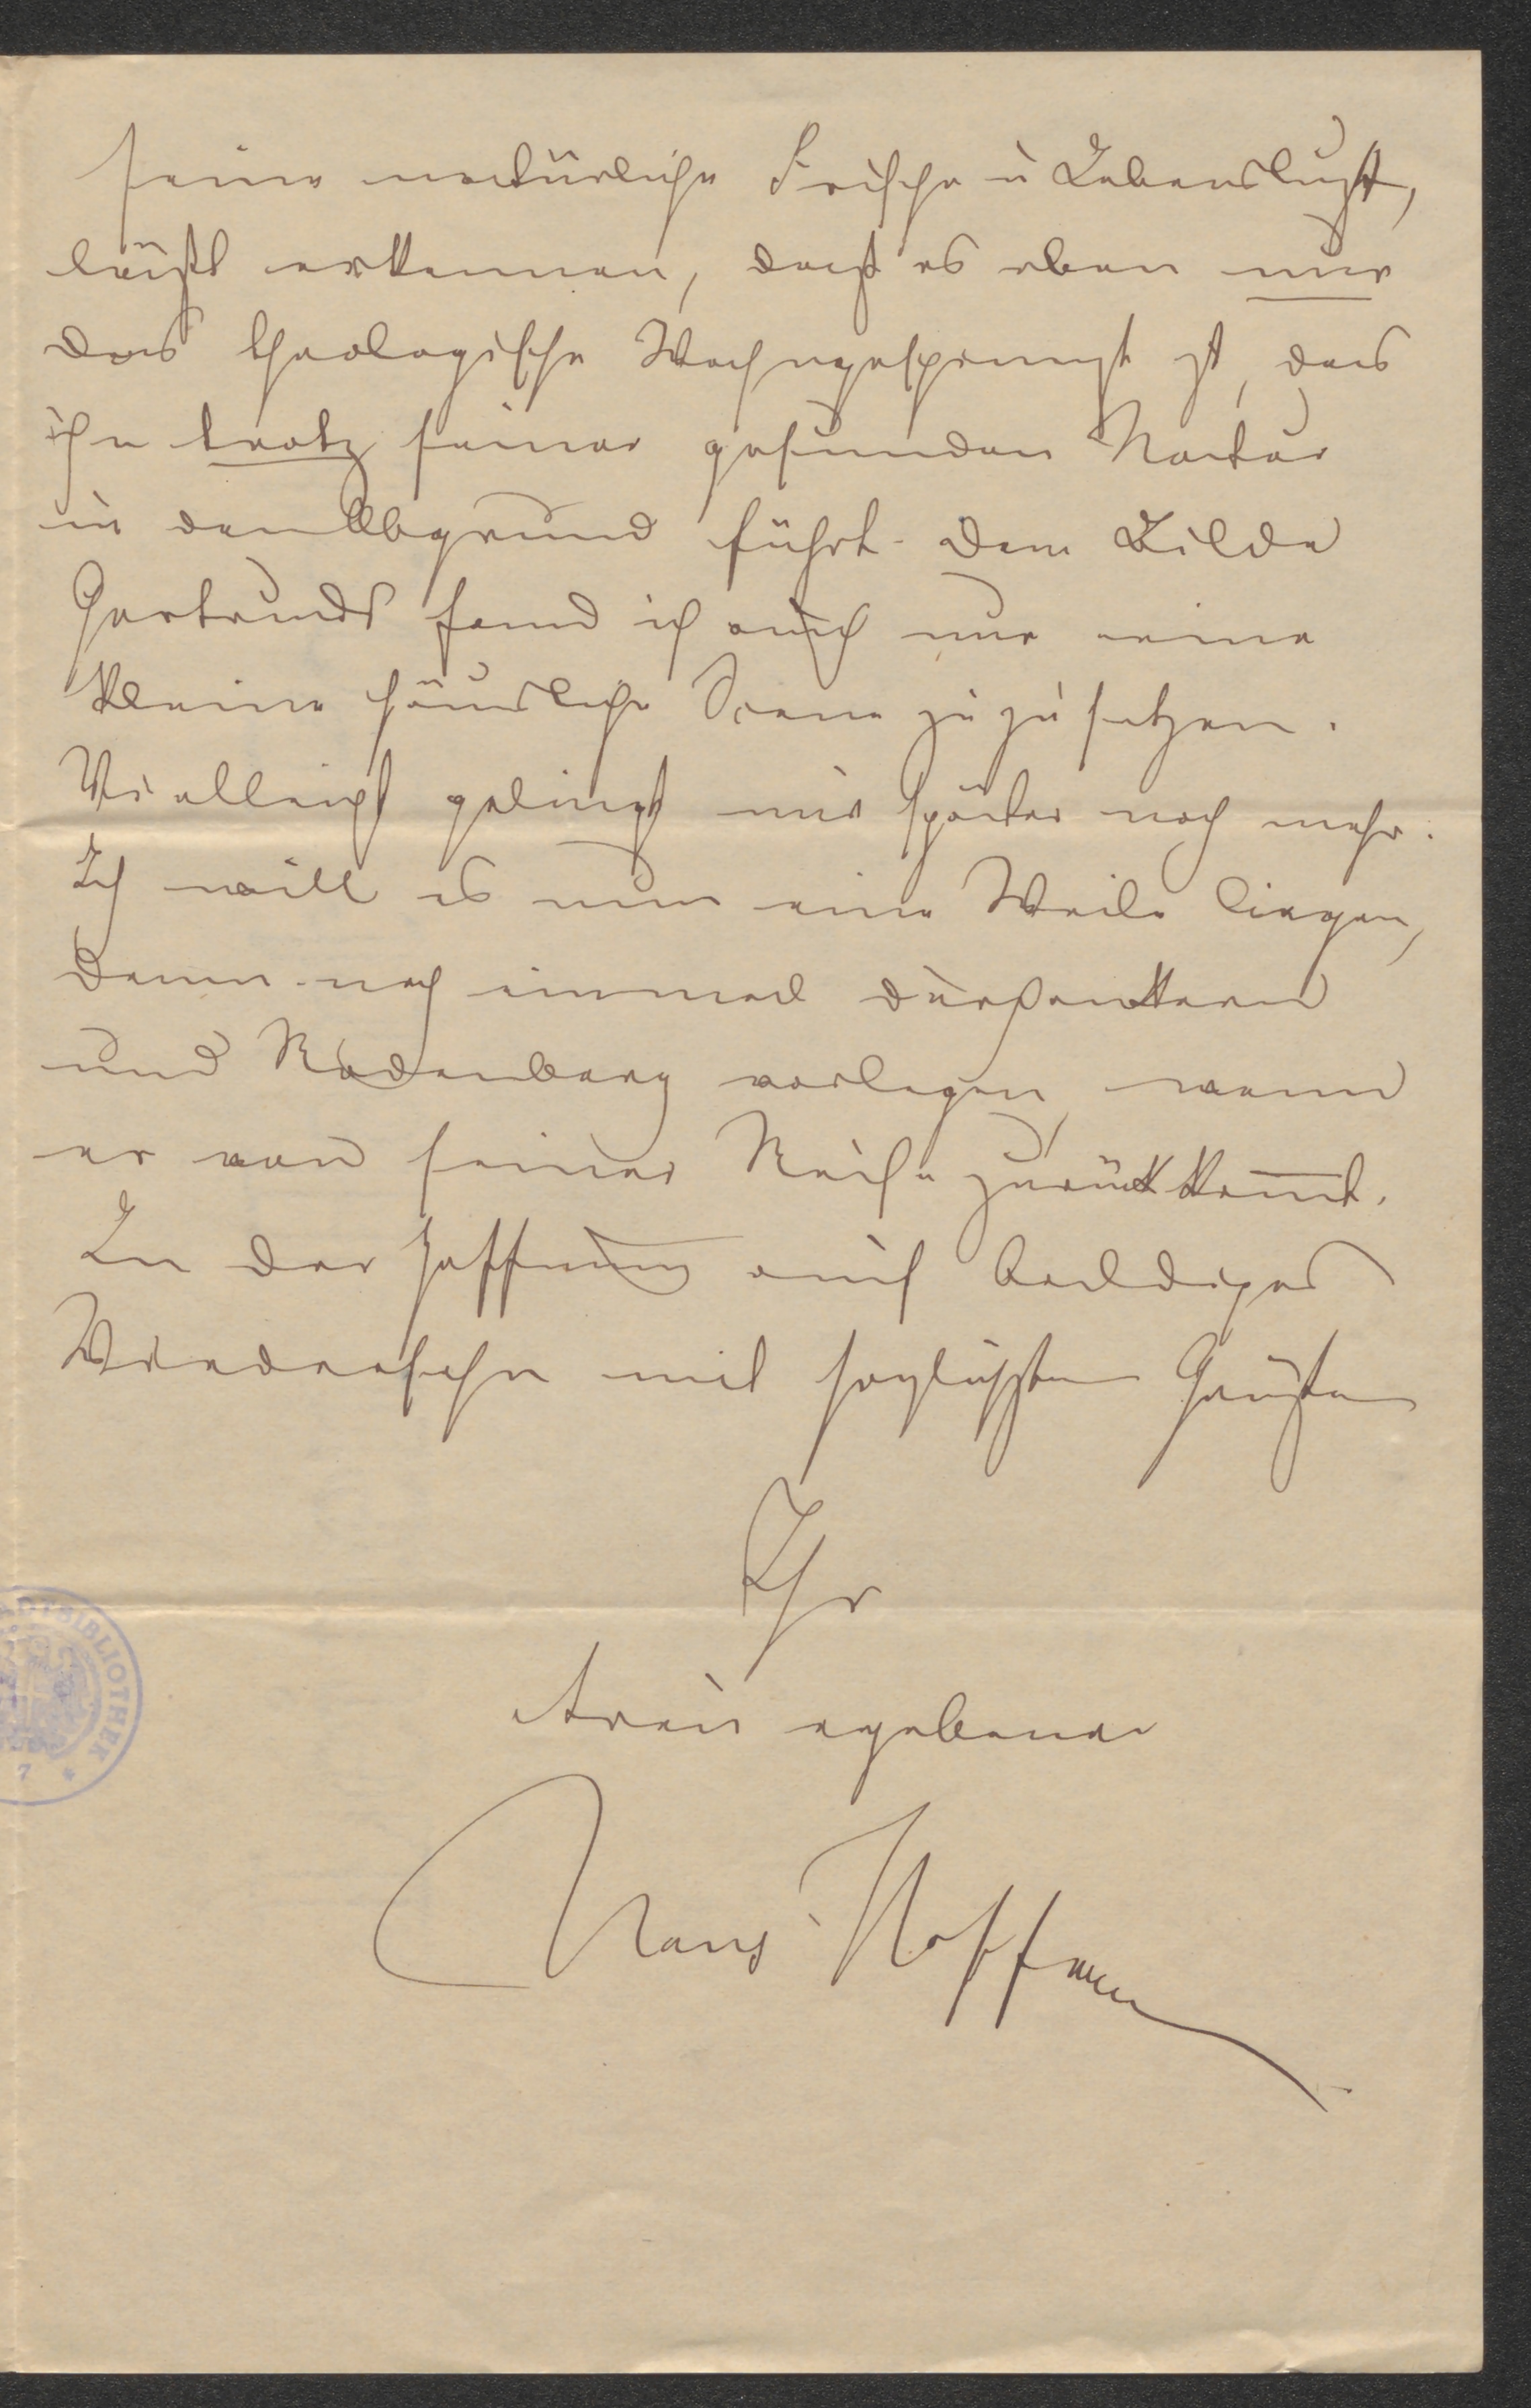 seine natürliche Frische u Lebenslust,
läßt erkennen, daß es eben nur
das theologische Wahngespinnst ist, das
ihn trotz seiner gesunden Natur
in den Abgrund führt. Dem Bilde
Gertruds fand ich auch nur eine
kleine häusliche Scene zuzusetzen.
Vielleicht gelingt mir später noch mehr.
Ich will es nun eine Weile liegen,
dann noch einmal durchackern
und Rodenberg vorlegen, wenn
er von seiner Reise zurückkomt.
In der Hoffnung auf baldiges
Wiedersehn mit herzlichsten Grüßen
Ihr
treu ergebener
Hans Hoffmann
BIBLIOTHEK
7 *